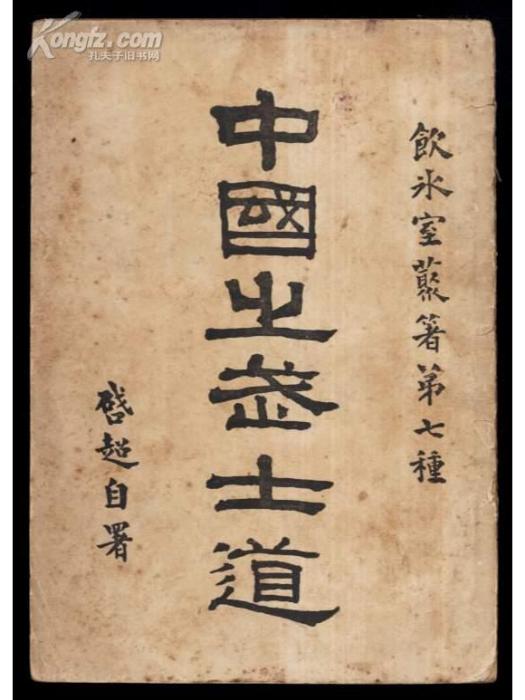 Kongfz.com
孔夫子旧书网
飲氷室叢箸第七種
中國之武士道
啓超自署